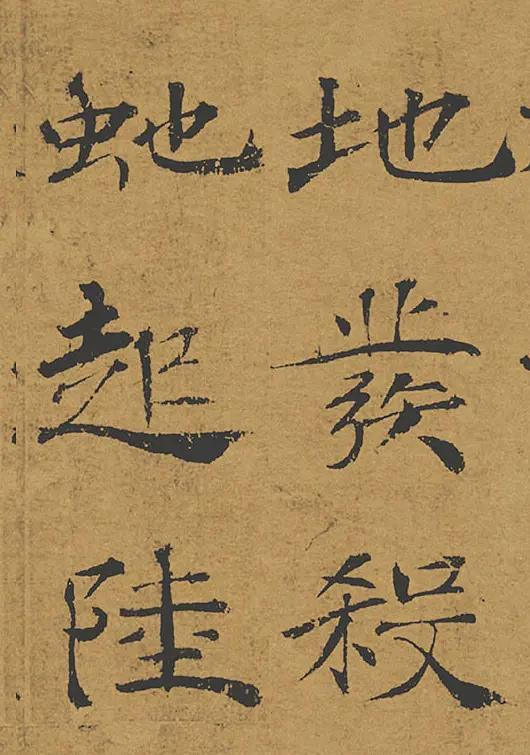 地發殺
虵起陸